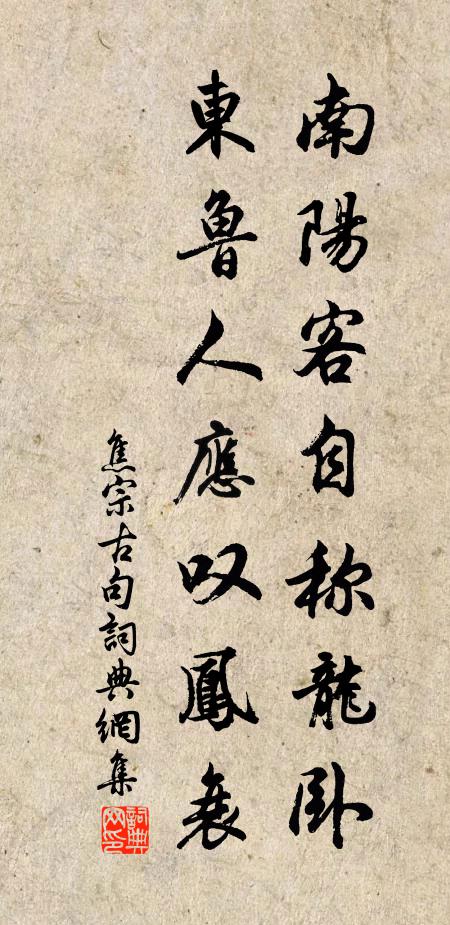 南陽客自称龍卧
東魯人應叹鳳衰
焦宗古句詞典網集
詞典網印